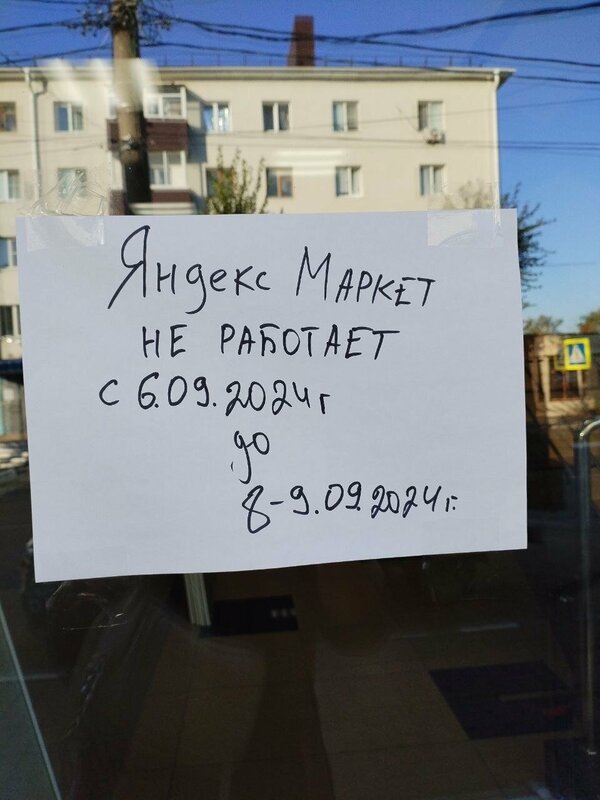 Яндекс Маркет
не работает
с 6.09.2024г
до
8-9.09.2024г.